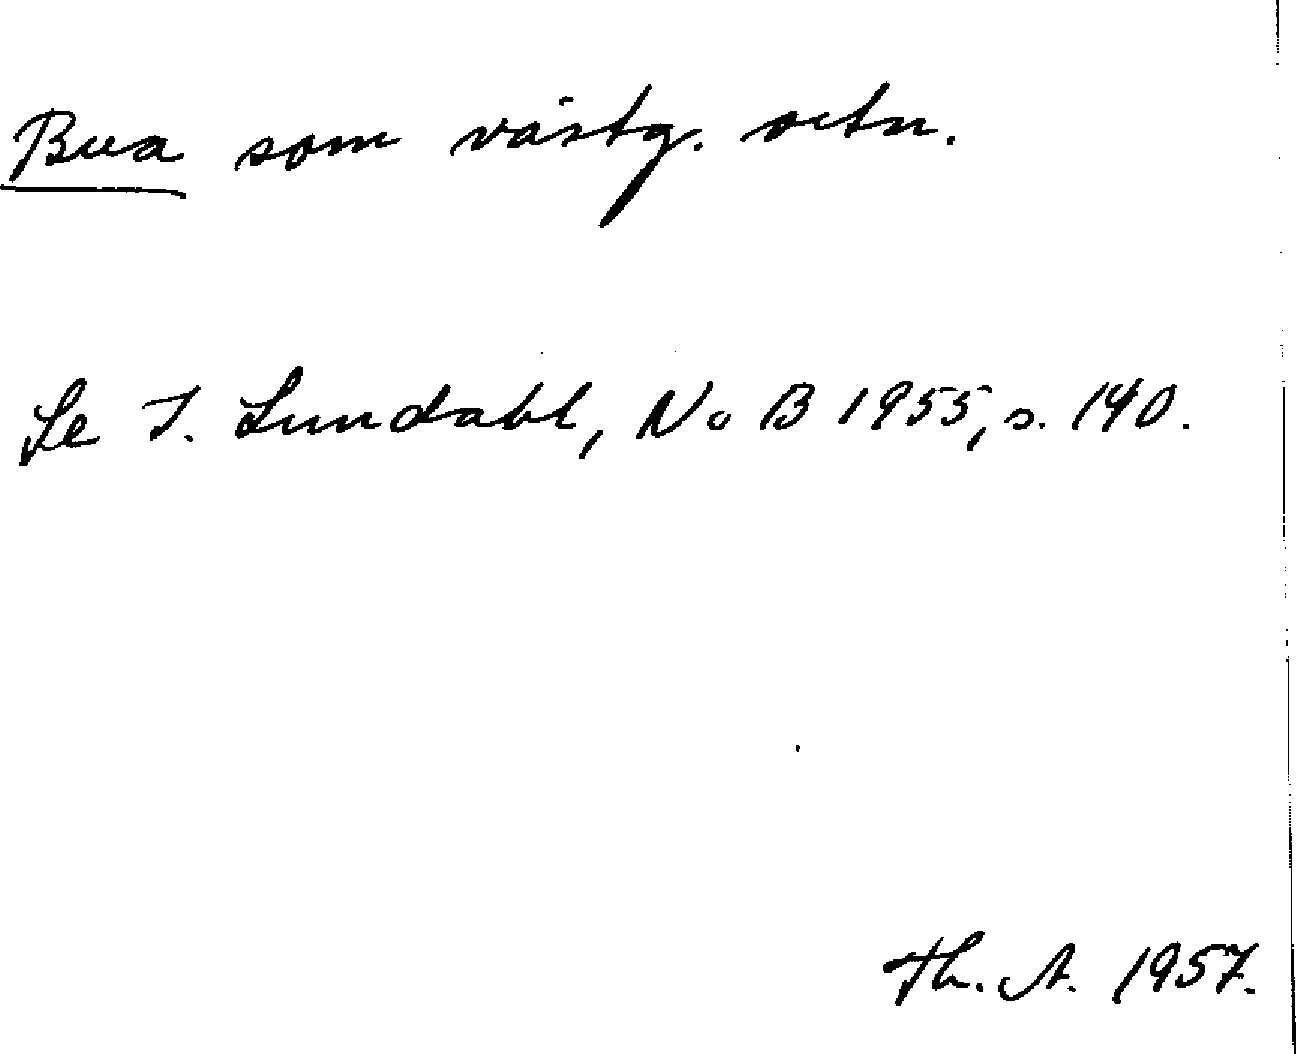 Bua som västg. ortn.
Se I. Lundahl, NoB 1955, s. 140.
Th. A. 1957.